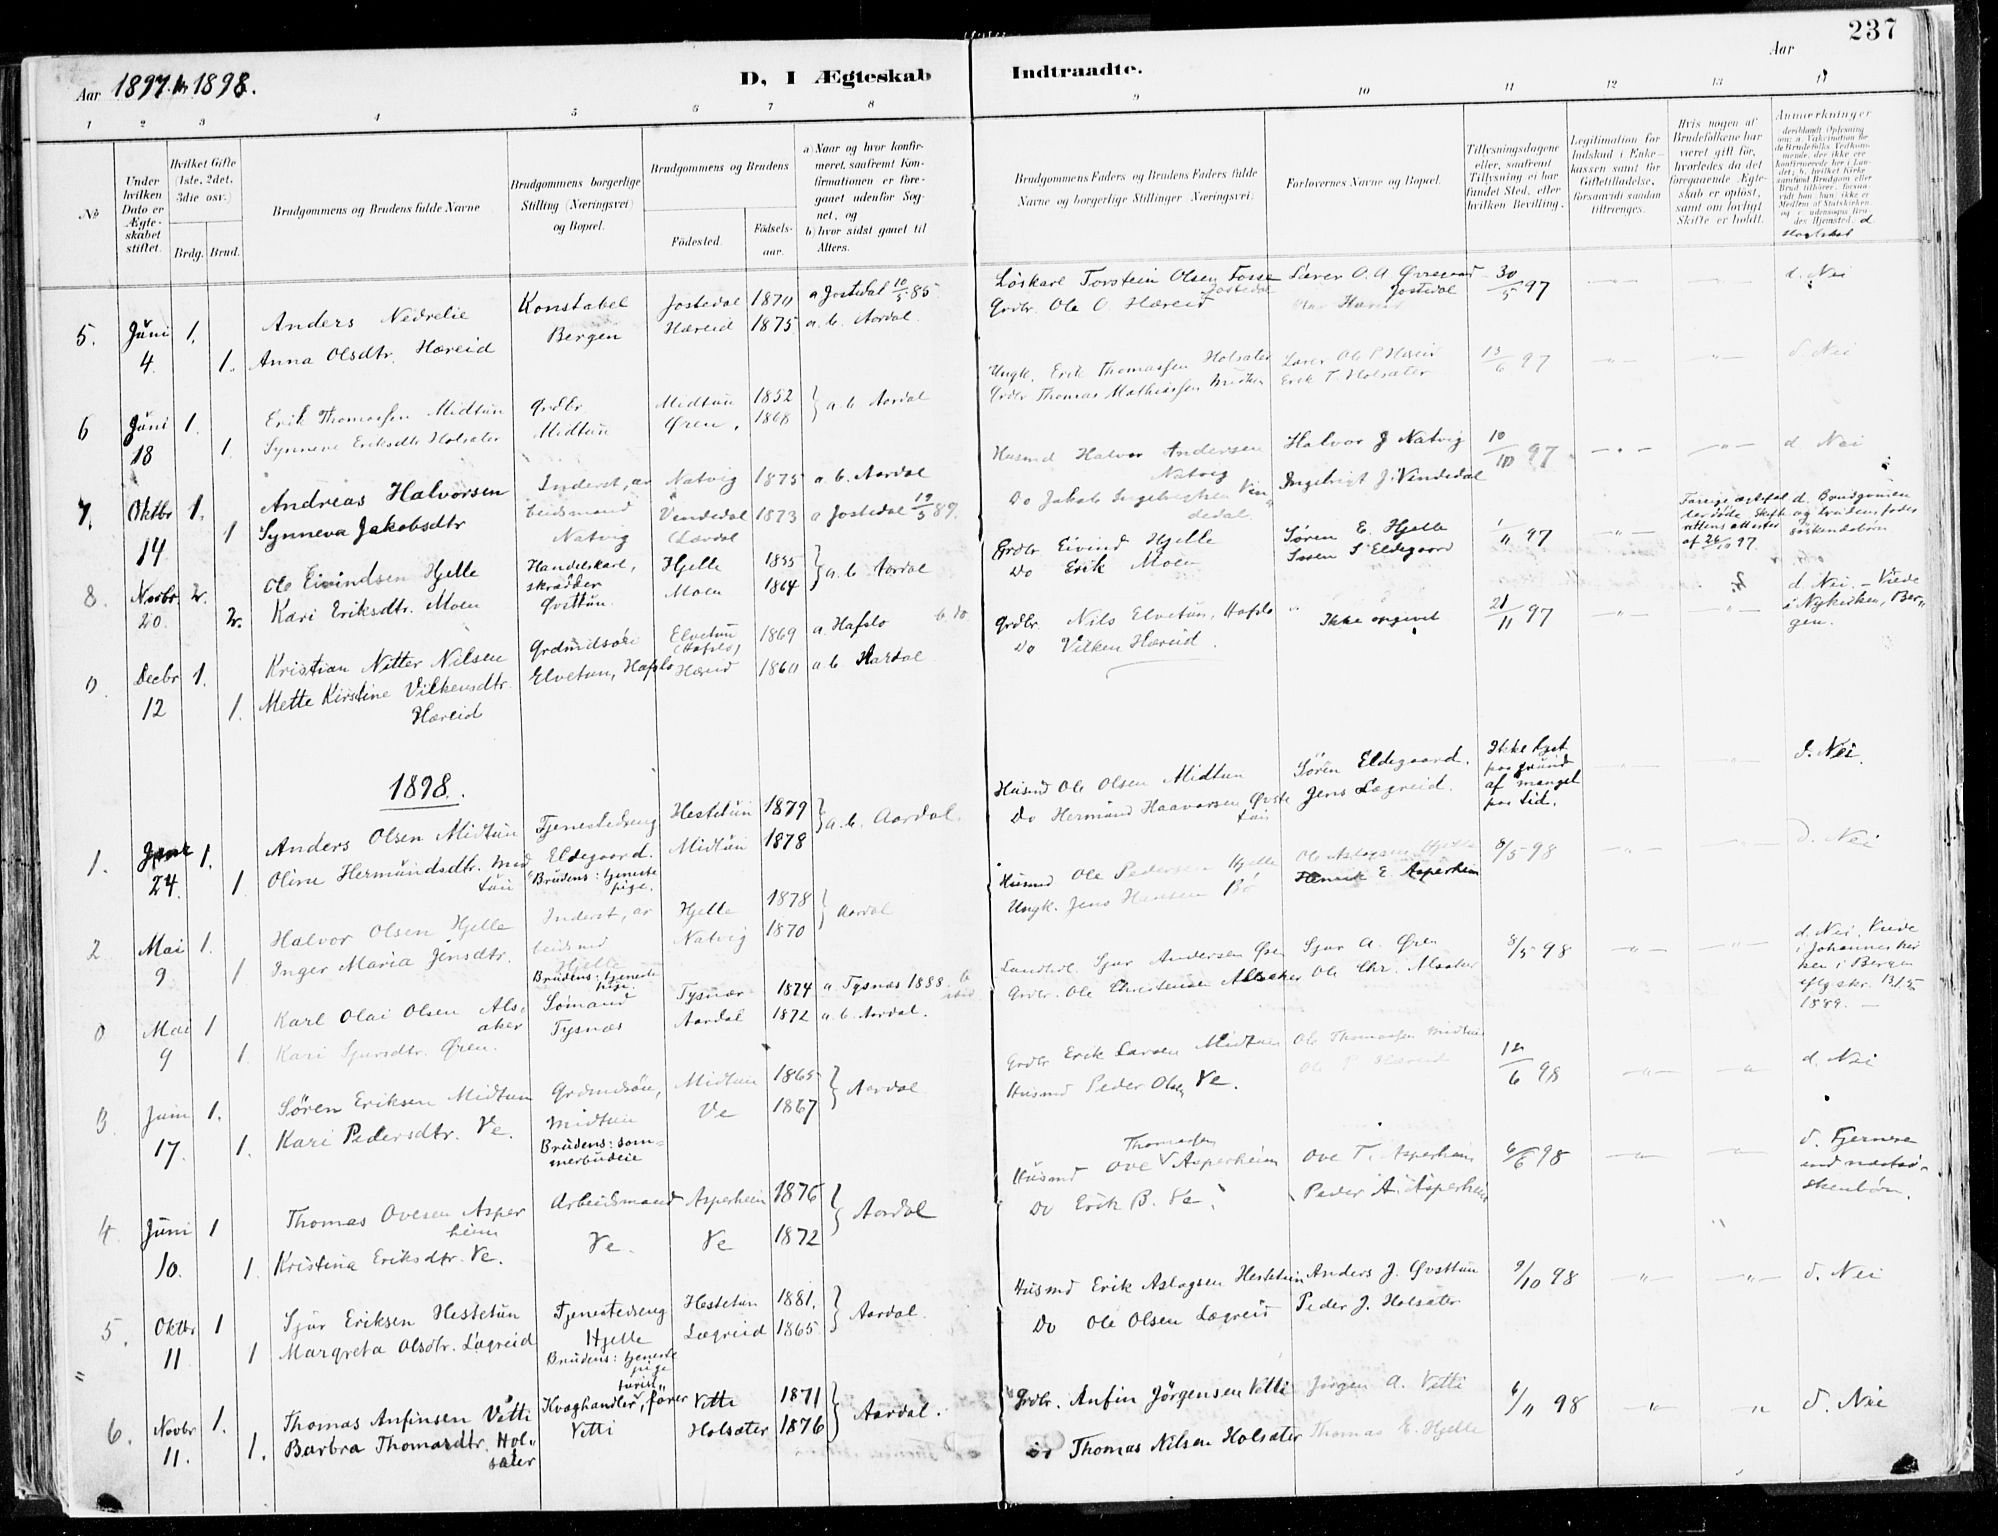 237
Aar 1897 1898.
D, I Ægteskab Indtraadte.
Aar
1 2 3 4 5 6 7 8 9 10 11 12 13 14
No
Under hvilken Dato er Ægteskabet stiftet.
Hvilket Gifte (1ste, 2det, 3die osv.)
Brdg. Brud.
Brudgommens og Brudens fulde Navne
Brudgommens borgerlige Stilling (Næringsvei) og Bopæl.
Brudgommens og Brudens
Fødested. Fødselsaar.
a) Naar og hvor konfirmeret, saafremt Konfirmationen er foregaaet udenfor Sognet, og
b) hvor sidst gaaet til Alters.
Brudgommens Faders og Brudens Faders fulde Navne og borgerlige Stillinger (Næringsvei).
Forlovernes Navne og Bopæl.
Tillysningsdagene eller, saafremt Tillysning ei har fundet Sted, efter hvilken Bevilling.
Legitimation for Indskud i Enkekassen samt for Giftetilladelse, forsaavidt saadan tiltrænges.
Hvis nogen af Brudefolkene har været gift før, hvorledes da det foregaaende Ægteskab er opløst, samt om lovligt Skifte er holdt.
Anmærkninger
5. Juni 4. 1. Anders Nedrelie Konstabel Jostedal 1870 a Jostedal 10/5 85 Löskarl Torstein Olsen Fosse Jostedal Lærer O. A Øvregaard Jostedal 30/5 97 d. Nei
1. Anna Olsdtr. Hæreid Bergen Hæreid 1875 a. b. Aardal. Grdbr. Ole O. Hæreid
6 Juni 18 1. Erik Thomassen Midtun Grdbr Midtun 1852 a. b. Aardal Ungk. Erik Thomassen Holsæter Lærer Ole P. Hæreid 13/6 97 d. Nei
1. Synneve Eriksdtr Holsæter Midtun Øren, 1868 Grdbr Thomas Mathiassen Midtun Erik T. Holsæter
7. Oktbr 14 1. Andreas Halvorsen Inderst, arbeidsmand Natvig 1875 a. b. Aardal Husmd Halvor Andersen Natvig Halvor J Natvig 10/10 97 d Nei
1 Synneva Jakobsdtr Natvig Vendedal (Lærdal 1873 a Jostedal 19/5 89. Do Jakob Ingebrigtsen Vendedal Ingebrigt J. Vendedal
8. Novbr. 20 2. Ole Eivindsen Hjelle Handelskarl, skrædder Hjelle 1855 a. b. Aardal Grdbr Eivind Hjelle Søren E. Hjelle 1/11 97
2. Kari Eriksdtr. Moen Øvsttun. Moen 1864 Do Erik Moen Søren S Eldegaard
Decbr 12 1. Kristian Nitter Nilsen Grdmdsøn Elvetun (Hafslo) 1869 a. Hafslo b. do Grdbr. Nils Elvetun, Hafslo Ikke opgivet 21/11 97 d. Nei – Viede i Nykirken, Bergen.
1. Mette Kirstine Vilkensdtr. Hæreid Elvetun, Hafslo Hæreid 1860 a b. Aardal Do Vilken Hæreid.
1898.
1. 24. 1. Anders Olsen Midtun Tjenestedreng Hestetun 1879 a. b. Aardal. Husmd Ole Olsen Midtun Søren Eldegaard. Ikke lyst paa grund af mangel paa tid. d. Nei.
1. Oline Hermundsdtr. Midtun Eldegaard. Brudens: tjenestepige. Midtun 1878 Do Hermund Haavorsen Øvstetun Jens Lægreid.
2 Mai 9 1. Halvor Olsen Hjelle Inderst, arbeidsmd Hjelle Hjelle 1878 Aardal Husmd Ole Pedersen Hjelle Ole Aslagsen Hjelle 8/5 98 d. Nei
1 Inger Maria Jensdtr. Brudens: tjenestepige. Natvig 1870 Ungk. Jens Hansen Bø Henrik E. Asperheim
Mai 9 1 Karl Olai Olsen Alsaker Sømand Tysnæs 1874 a. Tysnæs 1888. Landhdl. Sjur Andersen Øren Sjur A. Øren 8/5 98 d. Nei. Viede i Johanneskirken i Bergen
1. Kari Sjursdtr. Øren. Tysnæs Aardal 1872 a. b. Aardal. Grdbr. Ole Christensen Alsaker Ole Chr. Alsaker
3. Juni 17. 1. Søren Eriksen Midtun Grdmdsøn, Midtun Midtun 1865 Aardal Grdbr Erik Larsen Midtun Ole Thomassen Midtun 12/6 98 d. Nei
1. Kari Pedersdtr. Ve. Brudens: sommerbudeie Ve 1867 Husmd Peder Olsen Ve. Ole P. Hæreid
4. Juni 10. 1 Thomas Ovesen Asperheim Arbeidsmand Asperheim 1876 Aardal Husmd Ove Thomassen Asperheim Ove T. Asperheim 6/6 98 d. Fjernere end næstsøskenbørn.
1. Kristina Eriksdtr. Ve. Ve. Ve 1872 Do Erik B. Ve. Peder A. Asperheim
5. Oktbr 11 1 Sjur Eriksen Hestetun Tjenestedreng Hestetun 1881. Aardal. Husmd Erik Aslagsen Hestetun Anders J. Øvsttun 9/10 98 d. Nei
1 Margreta Olsdtr. Lægreid Hjelle Brudens: tjenestepige Lægreid 1865. Do Ole Olsen Lægreid Peder J. Holsæter
6. Novbr 11. 1. Thomas Anfinsen Vetti Kvæghandler, turistfører Vetti 1871 Aardal. Grdbr. Anfin Jörgensen Vetti Jörgen A. Vetti 6/11 98 d. Nei
1. Barbra Thomasdtr. Holsæter Vetti Holsæter 1876 Thomas Nilsen Holsæter Thomas E. Hjelle